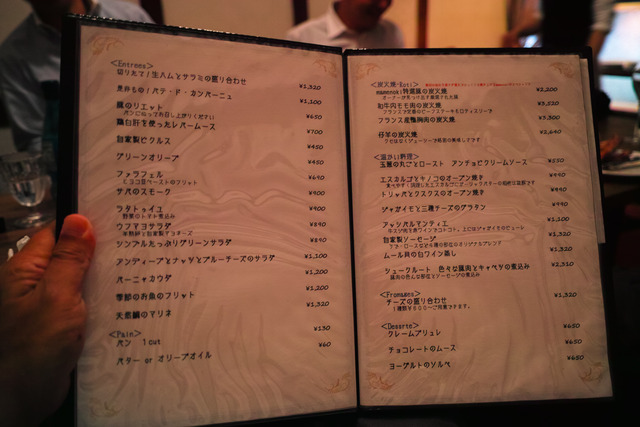 <Entrees>
切りたて！生ハムとサラミの盛り合わせ
¥1,320
煮枠もの！パテ・ド・カンパーニュ
¥1,100
豚のリエット
パンにぬってお召し上がりください
¥650
鶏白肝を使ったレバームース
¥700
自家製ピクルス
¥450
グリーンオリーブ
¥450
ファラフェル
ヒヨコ豆ペーストのフリット
¥690
サバのスモーク
¥900
ラタトゥイユ
野菜のトマト煮込み
¥900
ウフマヨサラダ
半熟卵と自家製マヨネーズ
¥890
シンプルたっぷりグリーンサラダ
¥890
アンディーブとナッツとブルーチーズのサラダ
¥1,100
バーニャカウダ
¥1,200
季節のお魚のフリット
¥1,200
天然鯛のマリネ
¥1,320
<Pain>
パン 1cut
¥130
バター or オリーブオイル
¥60
<炭火焼-Roti>
¥2,200
和牛内モモ肉の炭火焼
¥3,520
フランス産鴨胸肉の炭火焼
¥3,300
仔羊の炭火焼
¥2,640
<温かい料理>
玉葱の丸ごとロースト アンチョビクリームソース
¥550
エスカルゴとキノコのオーブン焼き
¥990
トリッパとクスクスのオーブン焼き
¥990
ジャガイモと三種チーズのグラタン
¥990
アッシパルマンティエ
¥1,100
自家製ソーセージ
¥1,320
ムール貝の白ワイン蒸し
¥1,320
シュークルート 色々な豚肉とキャベツの煮込み
¥2,310
<Fromages>
チーズの盛り合わせ
¥1,320
<Dessrte>
クレームブリュレ
¥650
チョコレートのムース
¥650
ヨーグルトのソルベ
¥650